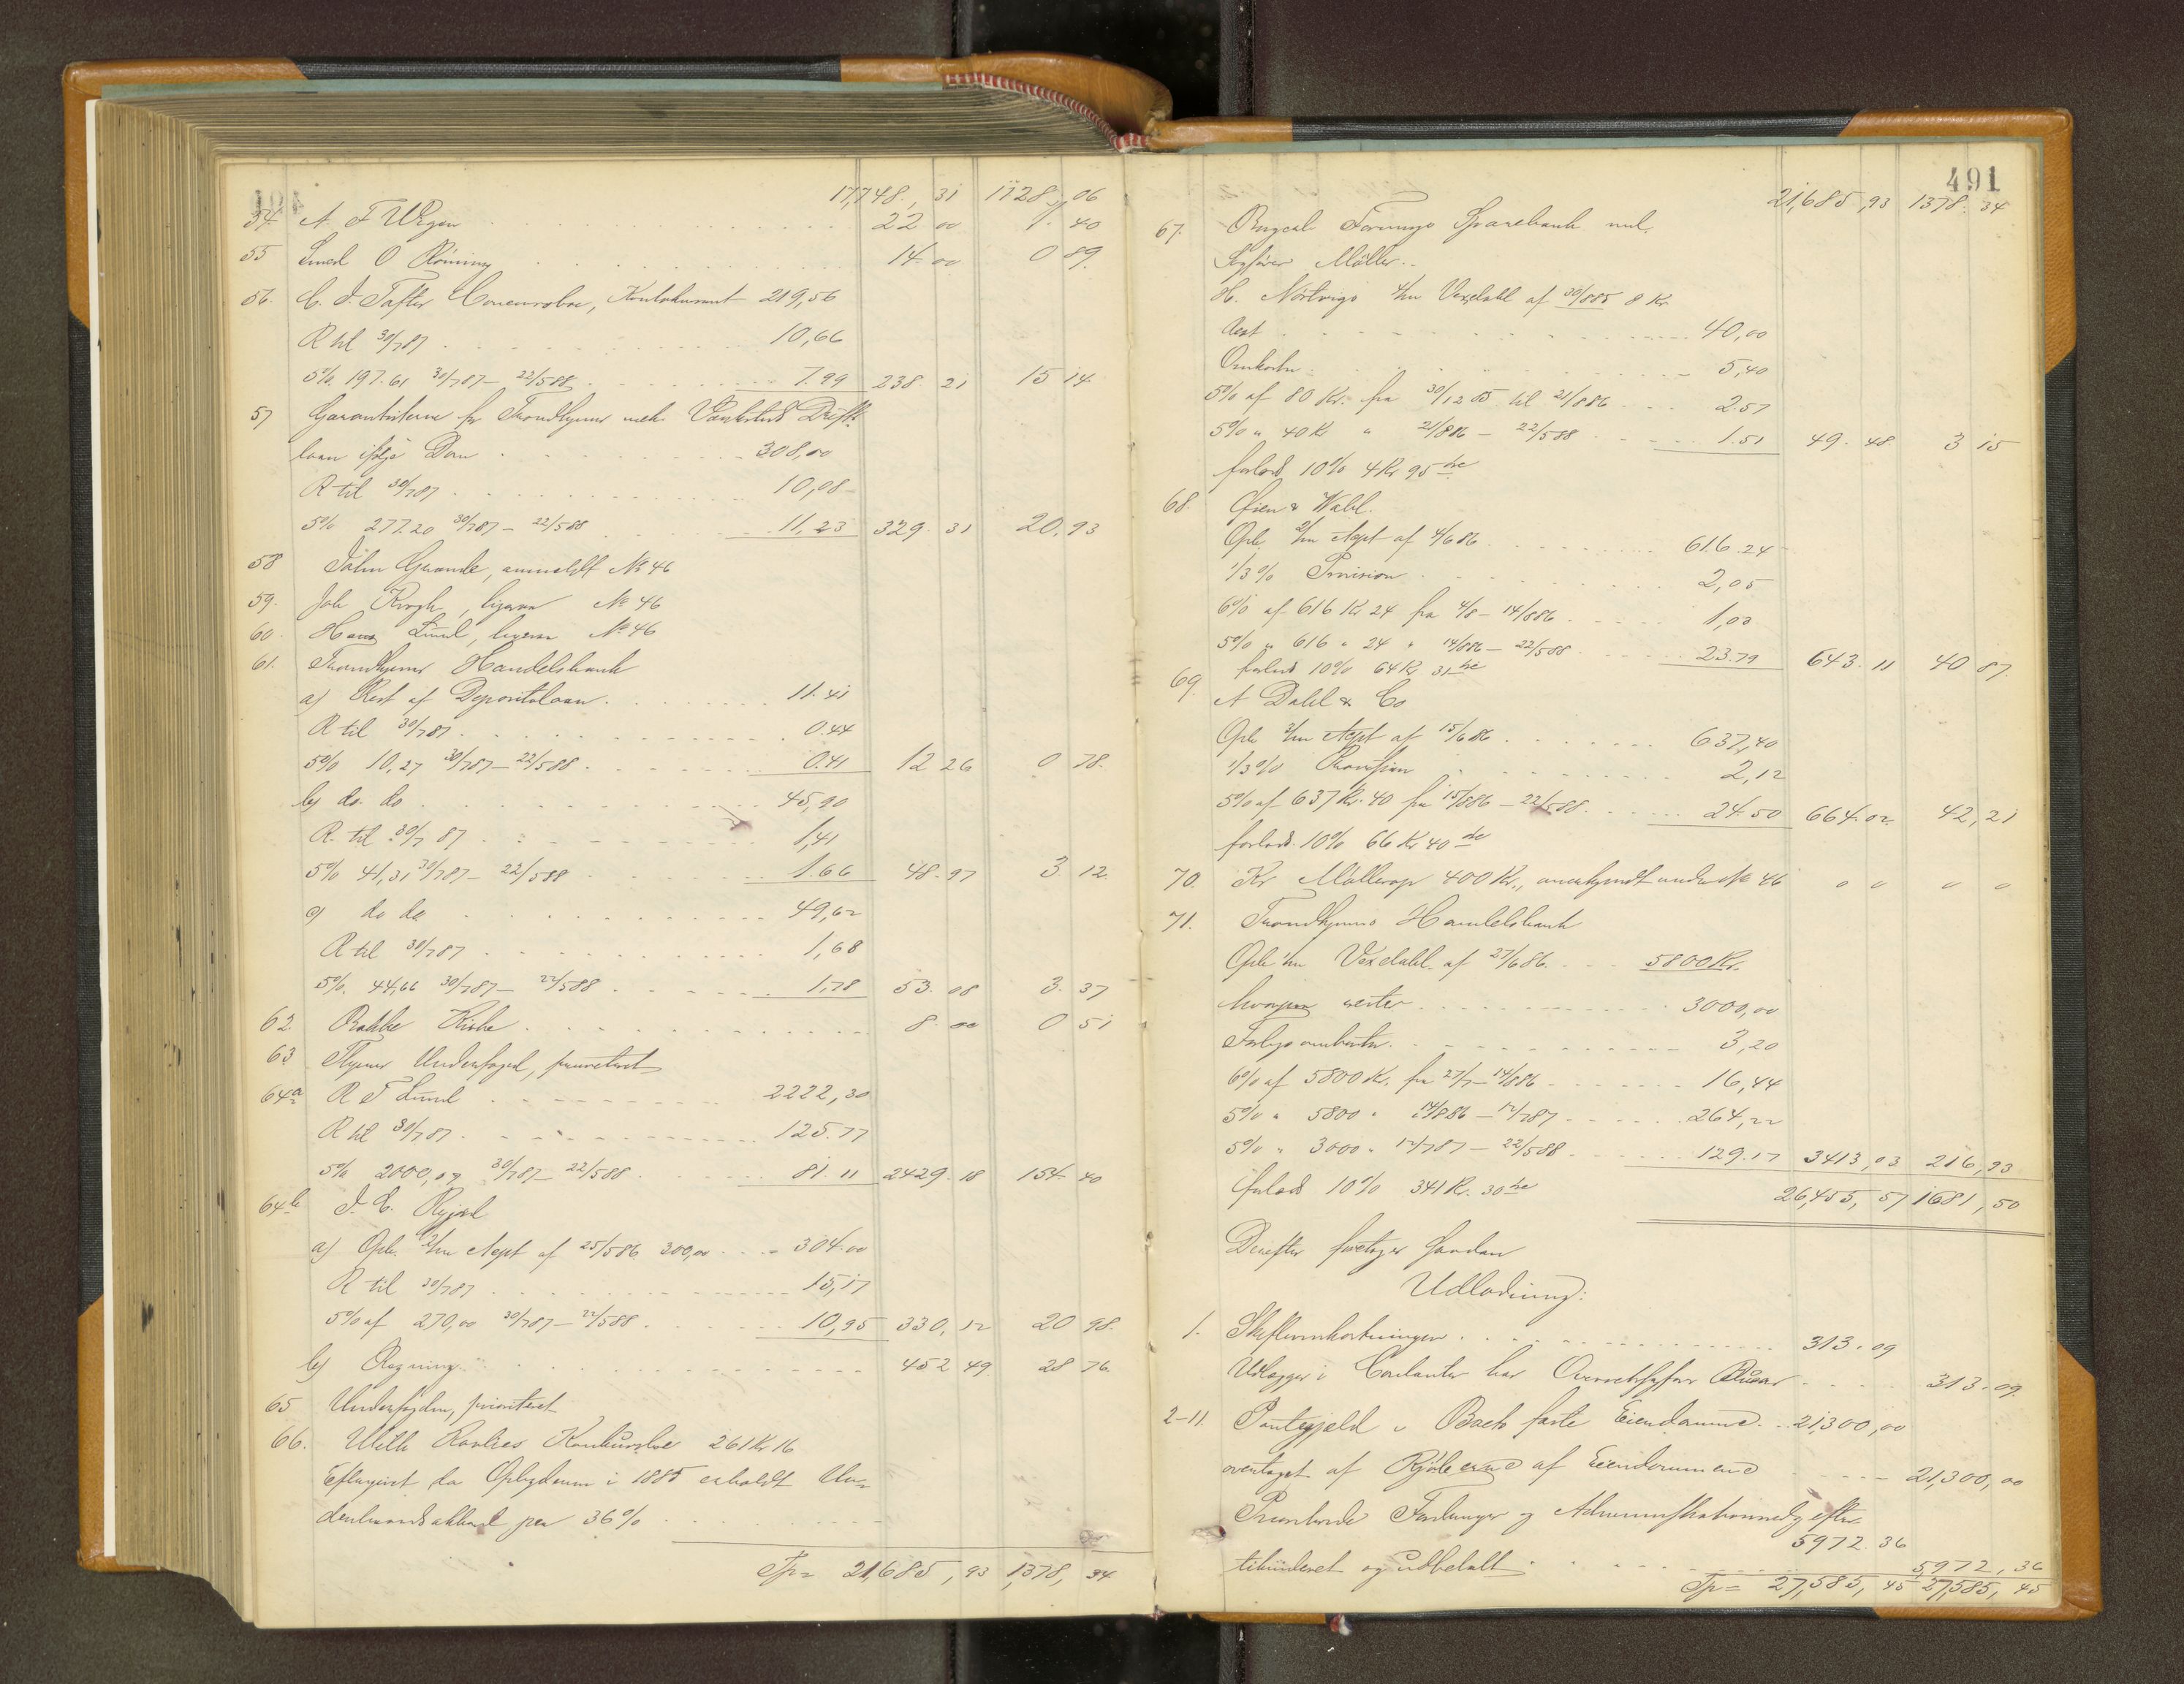 17,748, 31 1128, 06
54. A F Wigen 22 00 1. 40
55 Smed O Rönning 14 00 0 89
56. C. I. Tafter Concursbo, Kontokurant 219,56
R til 30/7 87 10,66
5% 197.61 30/7 87 – 22/5 88 7.99 238 21 15 14
57 Garantisterne for Trondhjems mek. Værksteds Drifts-
laan ifølge Dom 308,00
R til 30/7 87 10,08
5% 277.20 30/7 87 – 22/5 88 11,23 329. 31 20,93
58 John Grande, anmeldt No 46
59. Joh Krogh, ligesaa No 46
60. Hans Lund, ligesaa No 46
61. Trondhjems Handelsbank
a) Rest af Depositolaan 11.41
R til 30/7 87 0.44
5% 10,27 30/7 87 – 22/5 88 0.41 12 26 0 78.
b) do. do 45,90
R. til 30/7 87 1,41
5% 41,31 30/7 87 – 22/5 88 1.66 48.97 3 12.
c) do do 49,62
R til 30/7 87 1,68
5%. 44,66 30/7 87 – 22/5 88 1.78 53. 08 3. 37
62. Bakke Kirke 8. 00 0 51
63 Underfoged, prioriteret
64a R F Lund 2222,30
R til 30/7 87 125.77
5% 2000,07 30/7 87 – 22/5 88 81.11 2429.18 154. 40
64b I. C.
a) Opr. 2/m Acpt af 25/5 86 300,00 304.00
R til 30/7 87 15,17
5% af 270,00 30/7 87 – 22/5 88 10,95 330,12 20 98.
b) Regning 452 49. 28 76.
65 Underfogden, prioriteret
66. Konkursbo 261 Kr 16
Eftergivet da i 1885 erholdt Un-
derhaandsakkord paa 36%
Tp= 21,685, 93 1,378, 34
491
21,685,93 1378. 34
67. Sparebank ved
Sagfører Møller.
H. 4/m Vexelobl af 30/8 85 8 Kr
Rest 40,00
Omkostn. 5,40
5% af 80 Kr. fra 30/12 85 til 21/8 86 2.57
5% " 40 Kr " 21/8 86 – 22/5 88 1.51 49. 48 3 15
forlods 10% 4 Kr 95 Øre
68. Øien & Wahl.
Opr. 2/m Acpt af 4/6 86 616.24
1/3% Provision 2,05
6% af 616 Kr 24 fra 4/8 – 14/8 86 1,03
5% " 616 " 24 " 14/8 86 – 22/5 88 23.79 643. 11 40 87.
forlods 10% 64 Kr 31 Øre
69. A Dahl & Co
Opr 2/m Acpt af 15/6 86 637,40
1/3% Provision 2,12
5% af 637 Kr. 40 fra 15/8 86 – 22/5 88 24.50 664.02 42,21
forlods 10% 66 Kr 40 Øre
70. Kr Møllerop 400 Kr., anerkjendt under No 46 " " " "
71. Trondhjems Handelsbank
Opr 1/m Vexelobl. af 27/6 86. 5800 Kr.
hvorpaa rester 3000,00
3,20
6% af 5800 Kr. fra 27/7 – 14/8 86 16,44
5% " 5800 " 14/8 86 – 12/7 87 264,22
5% " 3000 " 12/7 87 – 22/5 88 129.17 3413,03 216,93
forlods 10% 341 Kr. 30 Øre 26,455, 57 1681, 50
Derefter foretoges saadan
Udlodning:
1. Skifteomkostninger 313.09
Udlægges i Contanter hos 313.09.
2-11. Pantegjeld i Boets faste Eiendomme 21,300,00
overtaget af Kjøberne af Eiendommene 21,300,00
Fordringer og
5972. 36
og udbetalt 5,972, 36
Tp= 27,585, 45 27,585, 45